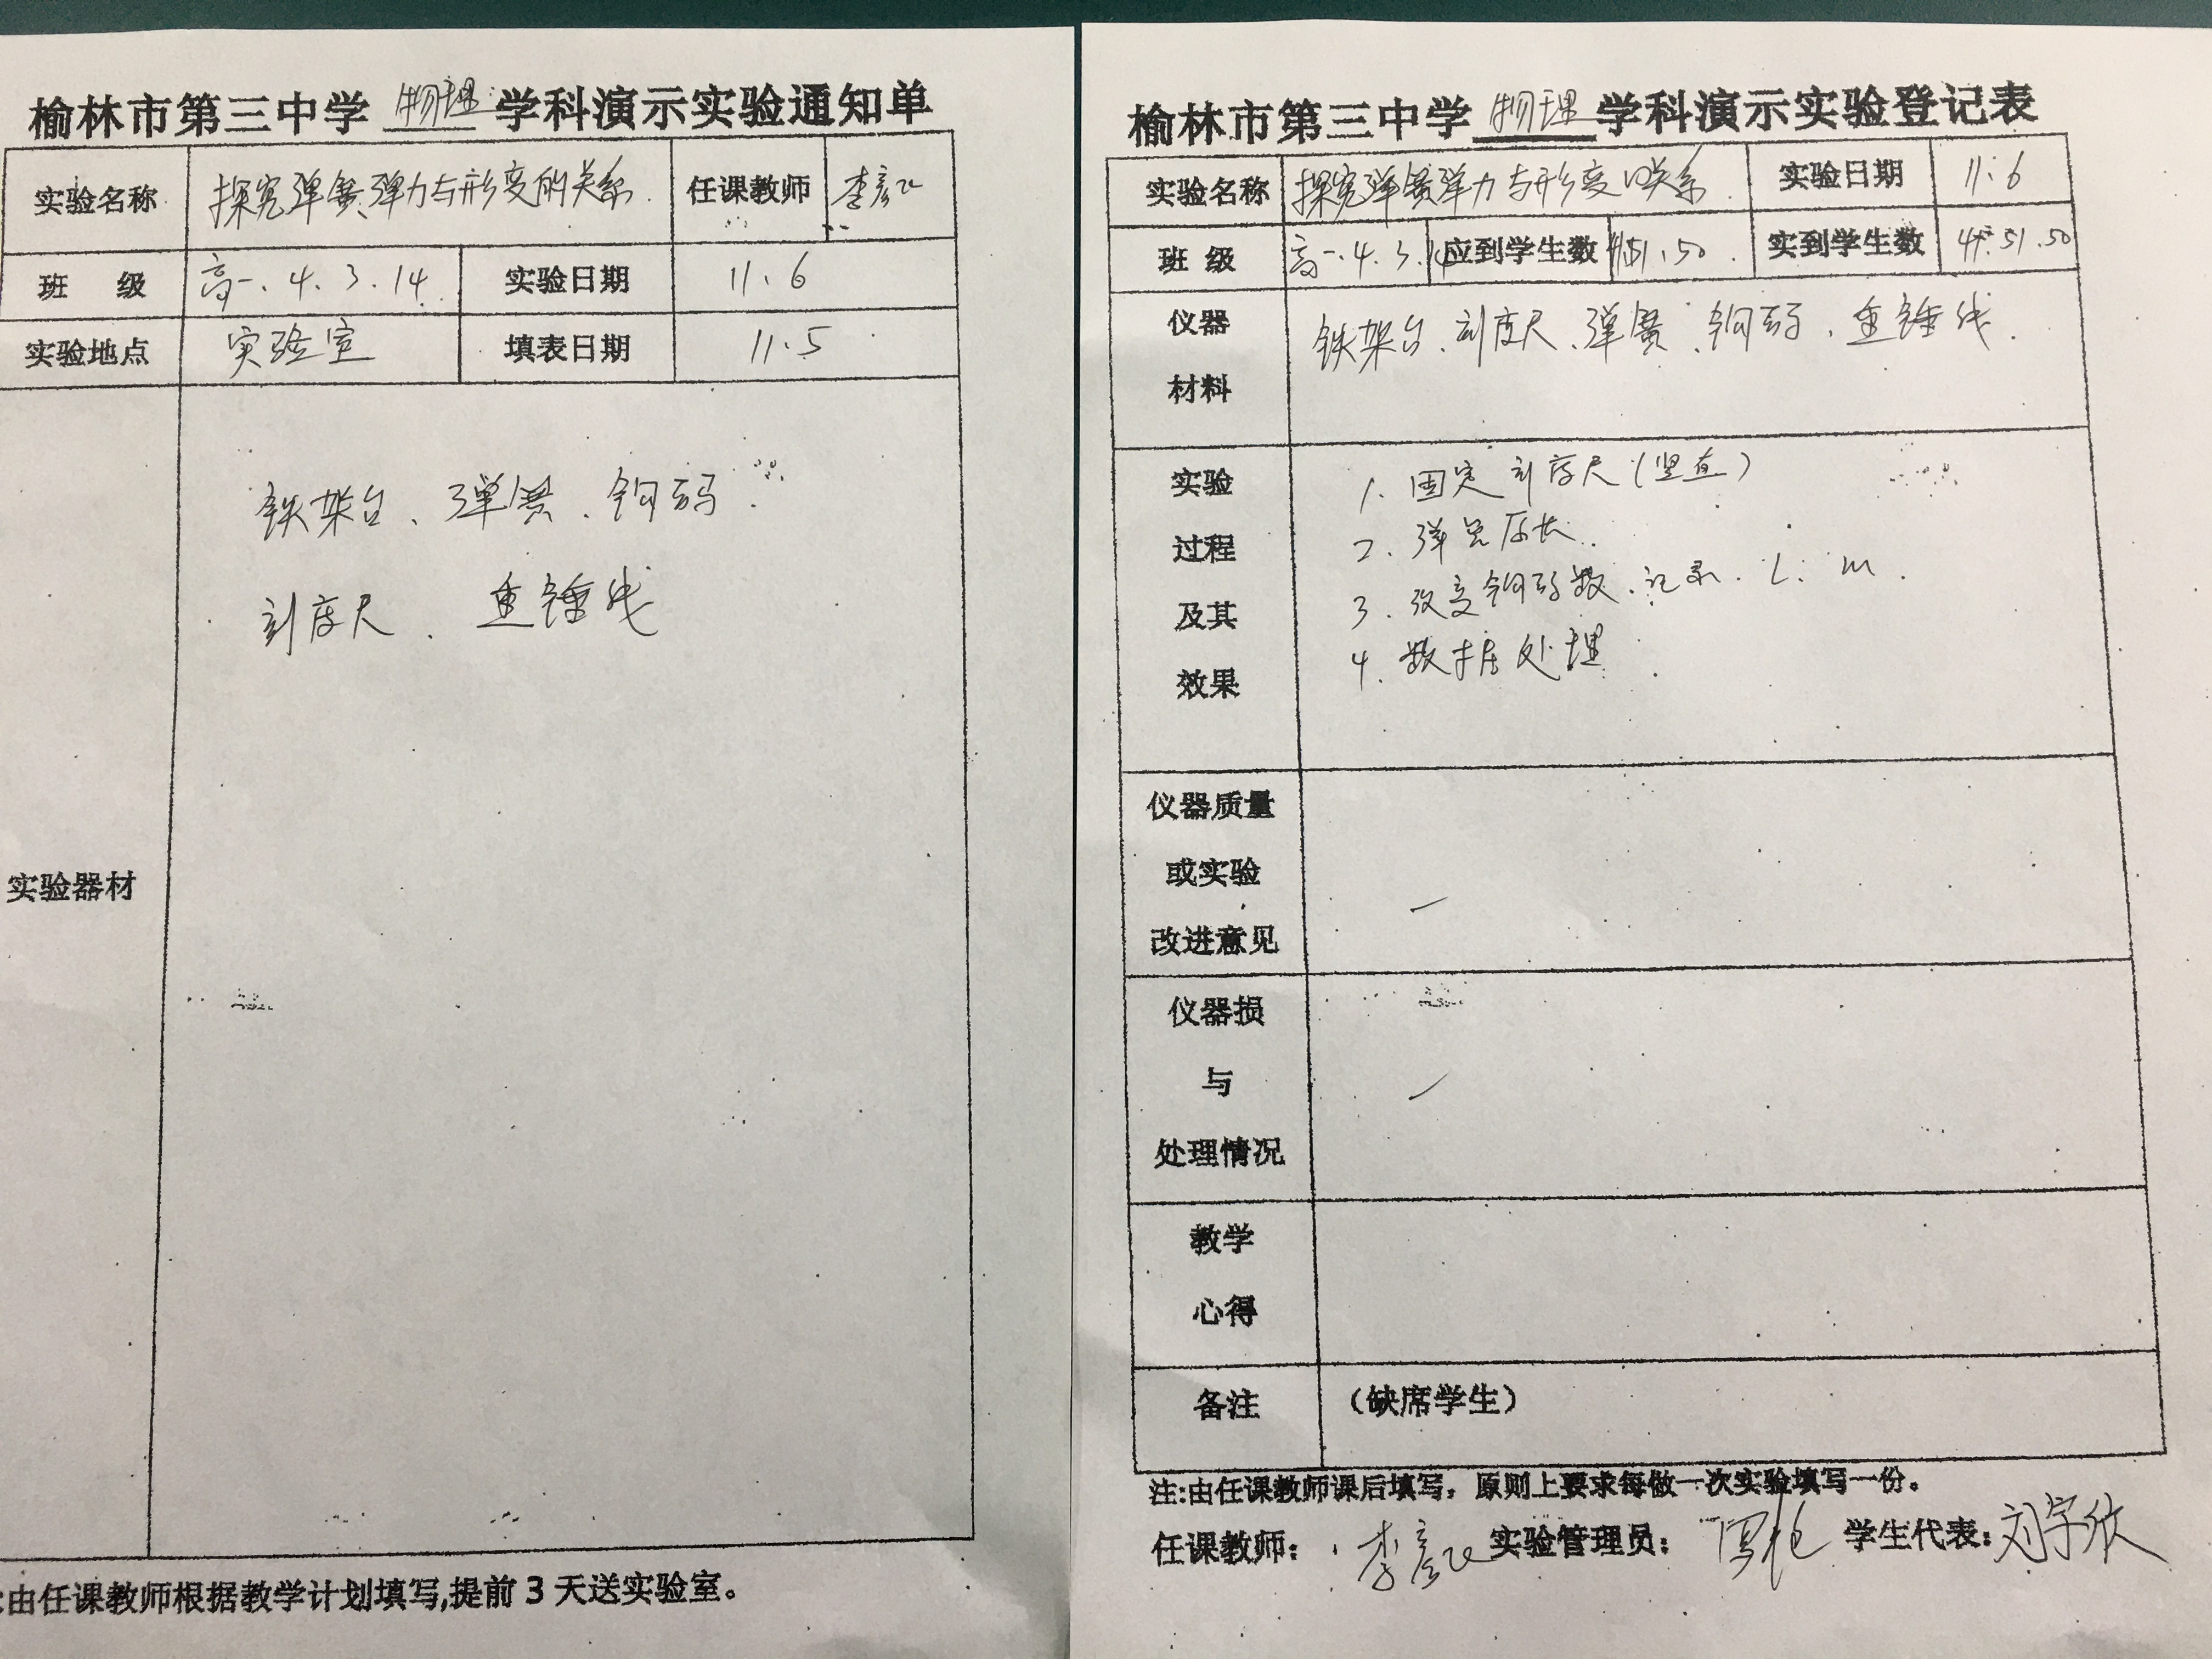 榆林市第三中学 物理 学科演示实验通知单
实验名称 探究弹簧弹力与形变的关系 任课教师 李彦
班 级 高一.4.3.14 实验日期 11.6
实验地点 实验室 填表日期 11.5
实验器材
铁架台、弹簧、钩码
刻度尺、重锤线
:由任课教师根据教学计划填写,提前3天送实验室。
榆林市第三中学 物理 学科演示实验登记表
实验名称 探究弹簧弹力与形变的关系 实验日期 11.6
班 级 高一.4.3. 应到学生数 51.50 实到学生数 51.50
仪器
材料
铁架台、刻度尺、弹簧、钩码、重锤线.
实验
过程
及其
效果
1. 固定刻度尺(竖直)
2. 弹簧原长
3. 改变钩码数.记录.L.m.
4. 数据处理
仪器质量
或实验
改进意见
仪器损
与
处理情况
教学
心得
备注 (缺席学生)
注:由任课教师课后填写，原则上要求每做一次实验填写一份。
任课教师: 李彦 实验管理员: 学生代表: 刘宇欣